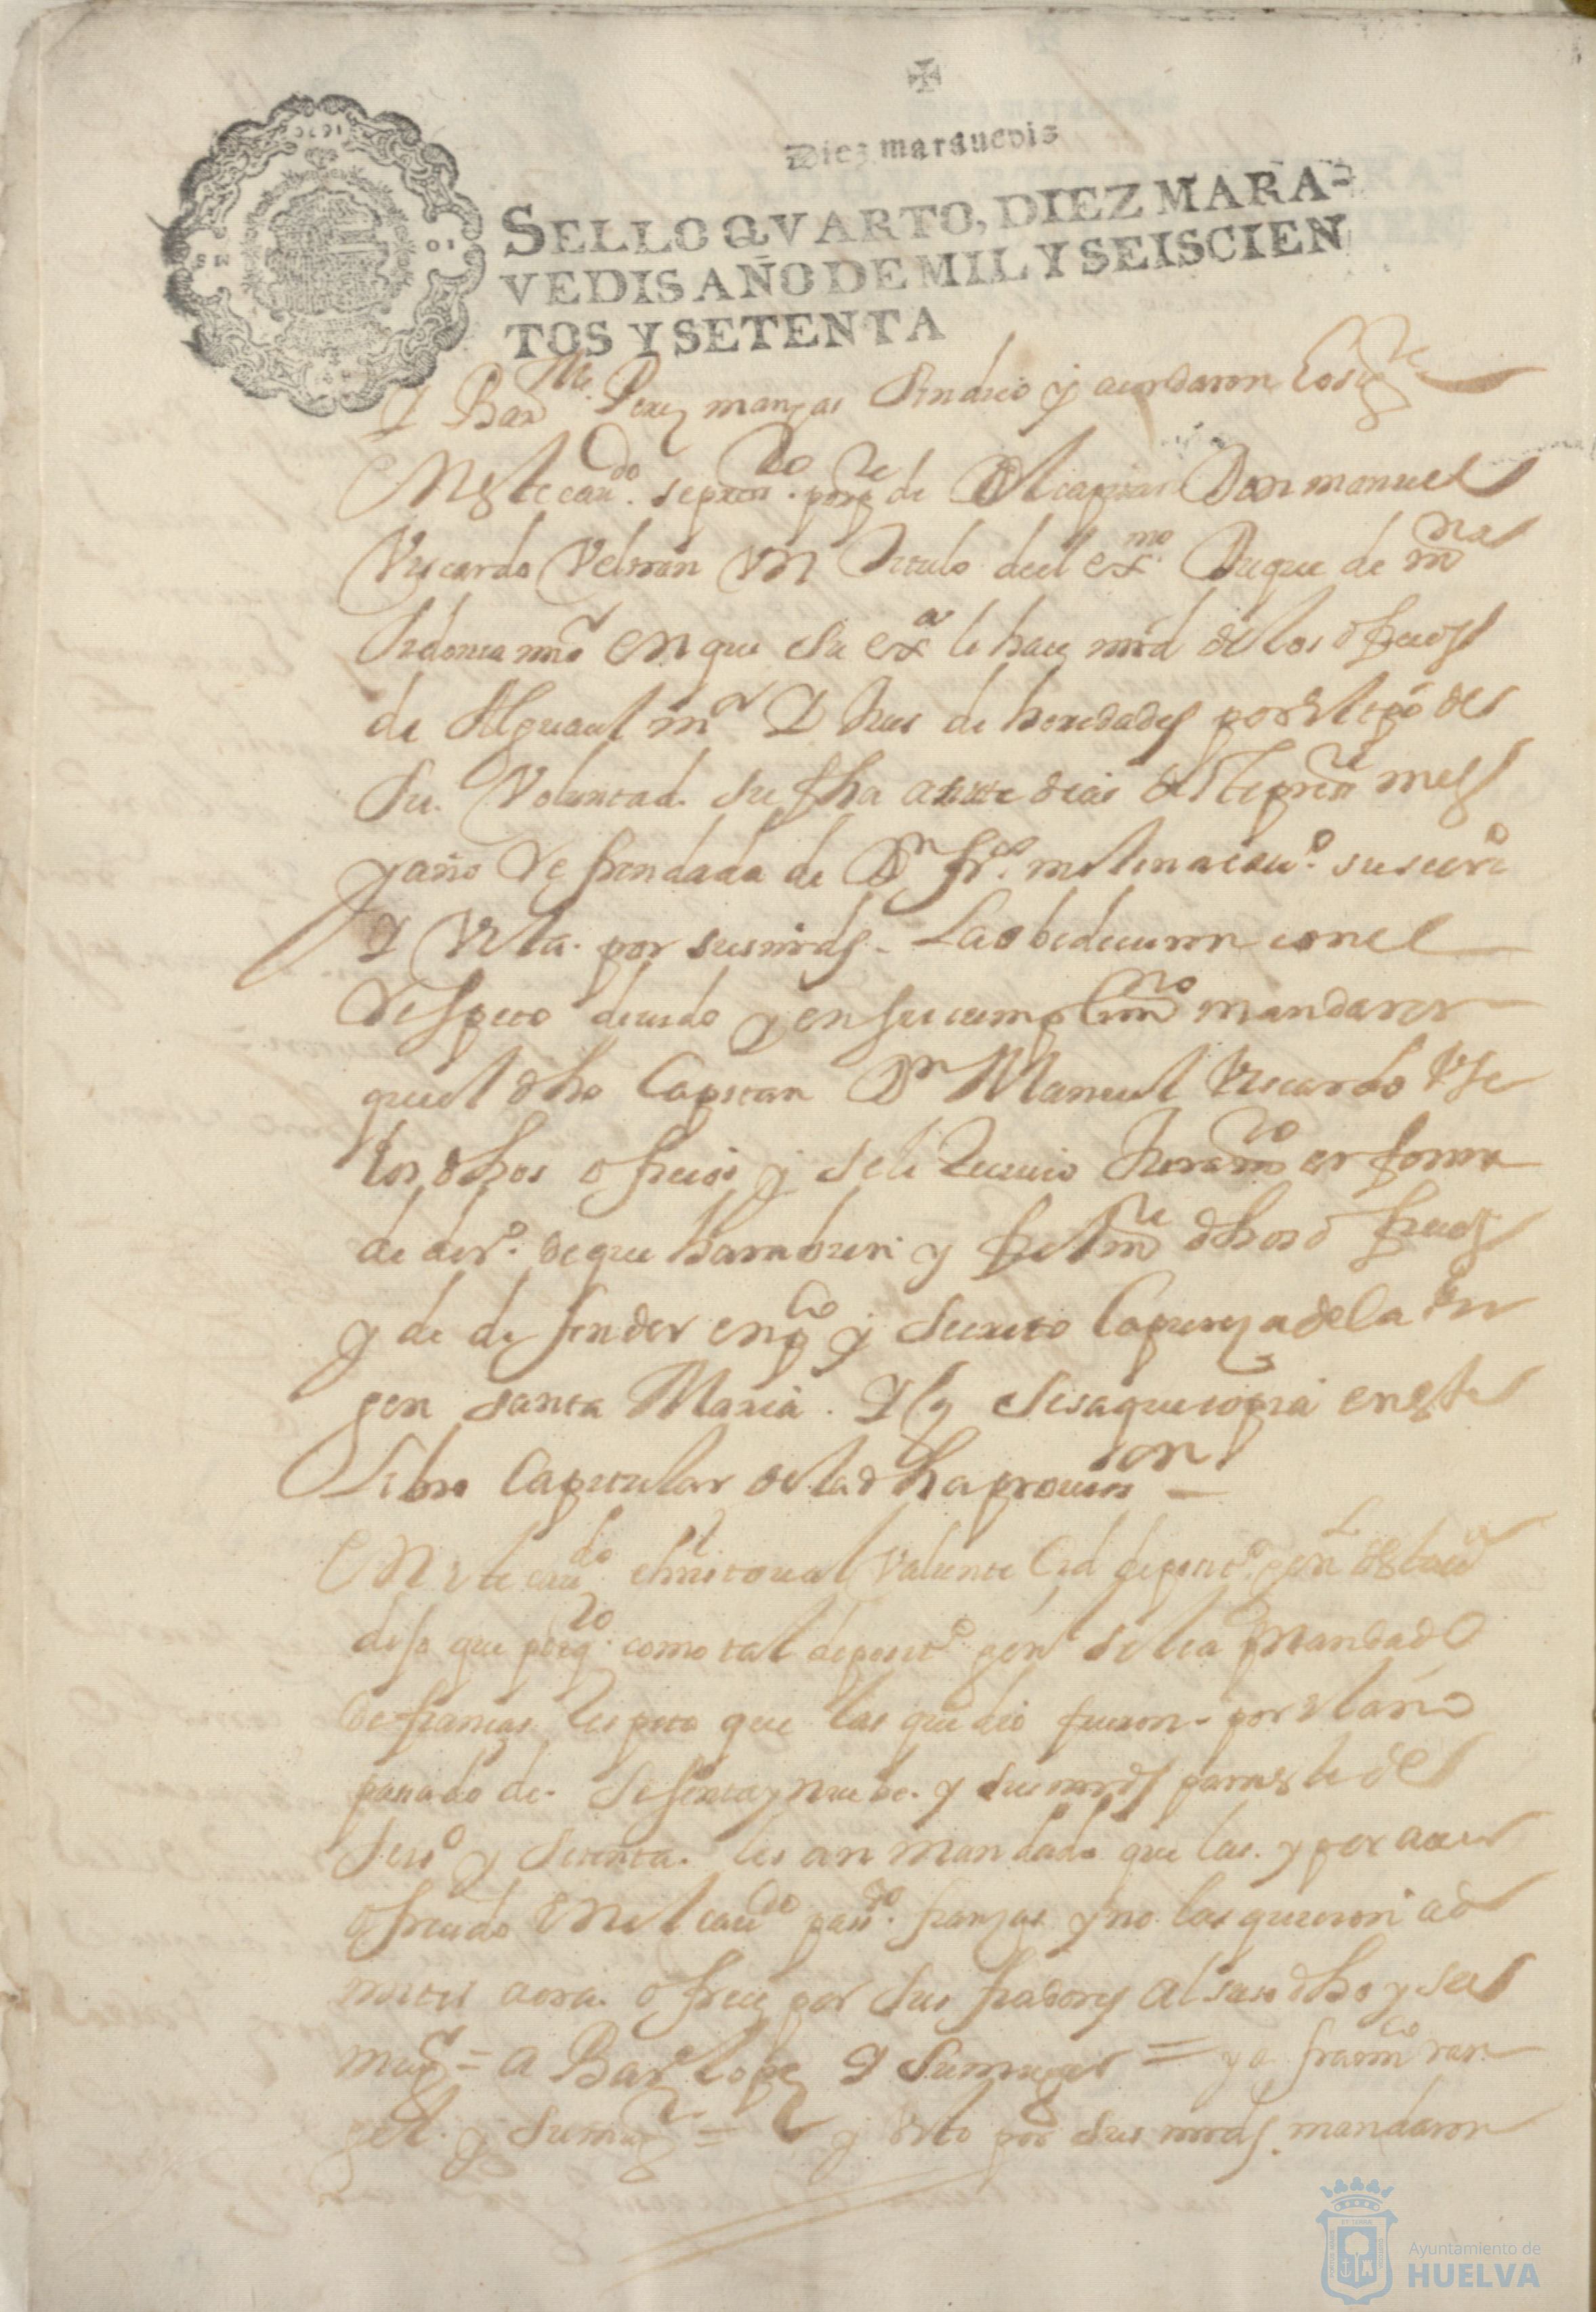 ✠
Diez marauedis
SELLO QVARTO, DIEZ MARA-
VEDIS AÑO DE MIL Y SEISCIEN
TOS Y SETENTA
1670
y Barme Perez manzas sindico y acordaron lo sigte
En este caudo se presto por pte de el capitan Don manuel
Viscardo Veltran Un titulo de el exmo Duque de mna
sidonia mi sr en que su exa le hace mrd de los oficios
de Alguacil mr y Jues de heredades por el tpo de
su Voluntad su fha a siete dias deste preste mes
y año Refrendada de Dn frco molina su secrio
y Vista por sus mrds La obedecieron con el
Respeto deuido y en su cumplimto mandaron
que el dho Capitan Dn Manuel Viscardo Vse
los dhos oficios y se le Reciuio Juramto en forma
de dro de que hara bien y fielmte dhos oficios
y de defender en pco y secreto la pureza de la Vir
gen santa Maria y se saque copia en este
Libro Capitular de la dha prouision
En este caudo christoual Valiente Cid deposito genl deste caudo
dijo que por qto como tal deposito genl se le a mandado
de fianças respeto que las que dio fueron por el año
pasado de sesenta y nuebe y sus mrds para este de
seiso y setenta les an mandado que las y por auer
ofrecido en el caudo pasdo fianzas y no las quisieron ad
mitir aora ofrece por sus fiadores al suso dho y su
muger = a Bare lopez y su muger = y a franco ran
gel y su muger = y visto por sus mrds mandaron
Ayuntamiento de
HUELVA